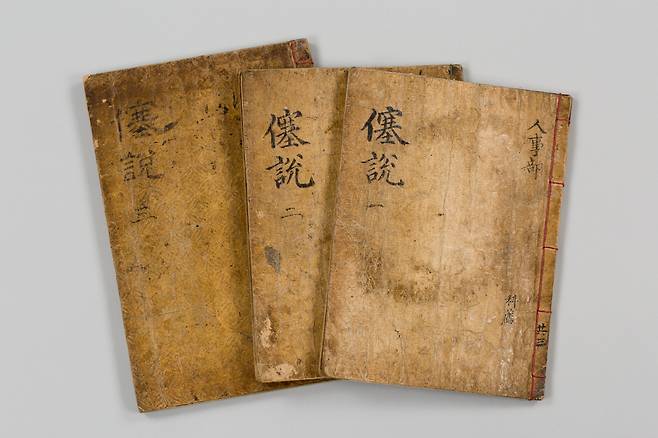 僿說 一
人事部
科薦
共三
僿說 二
僿說 三